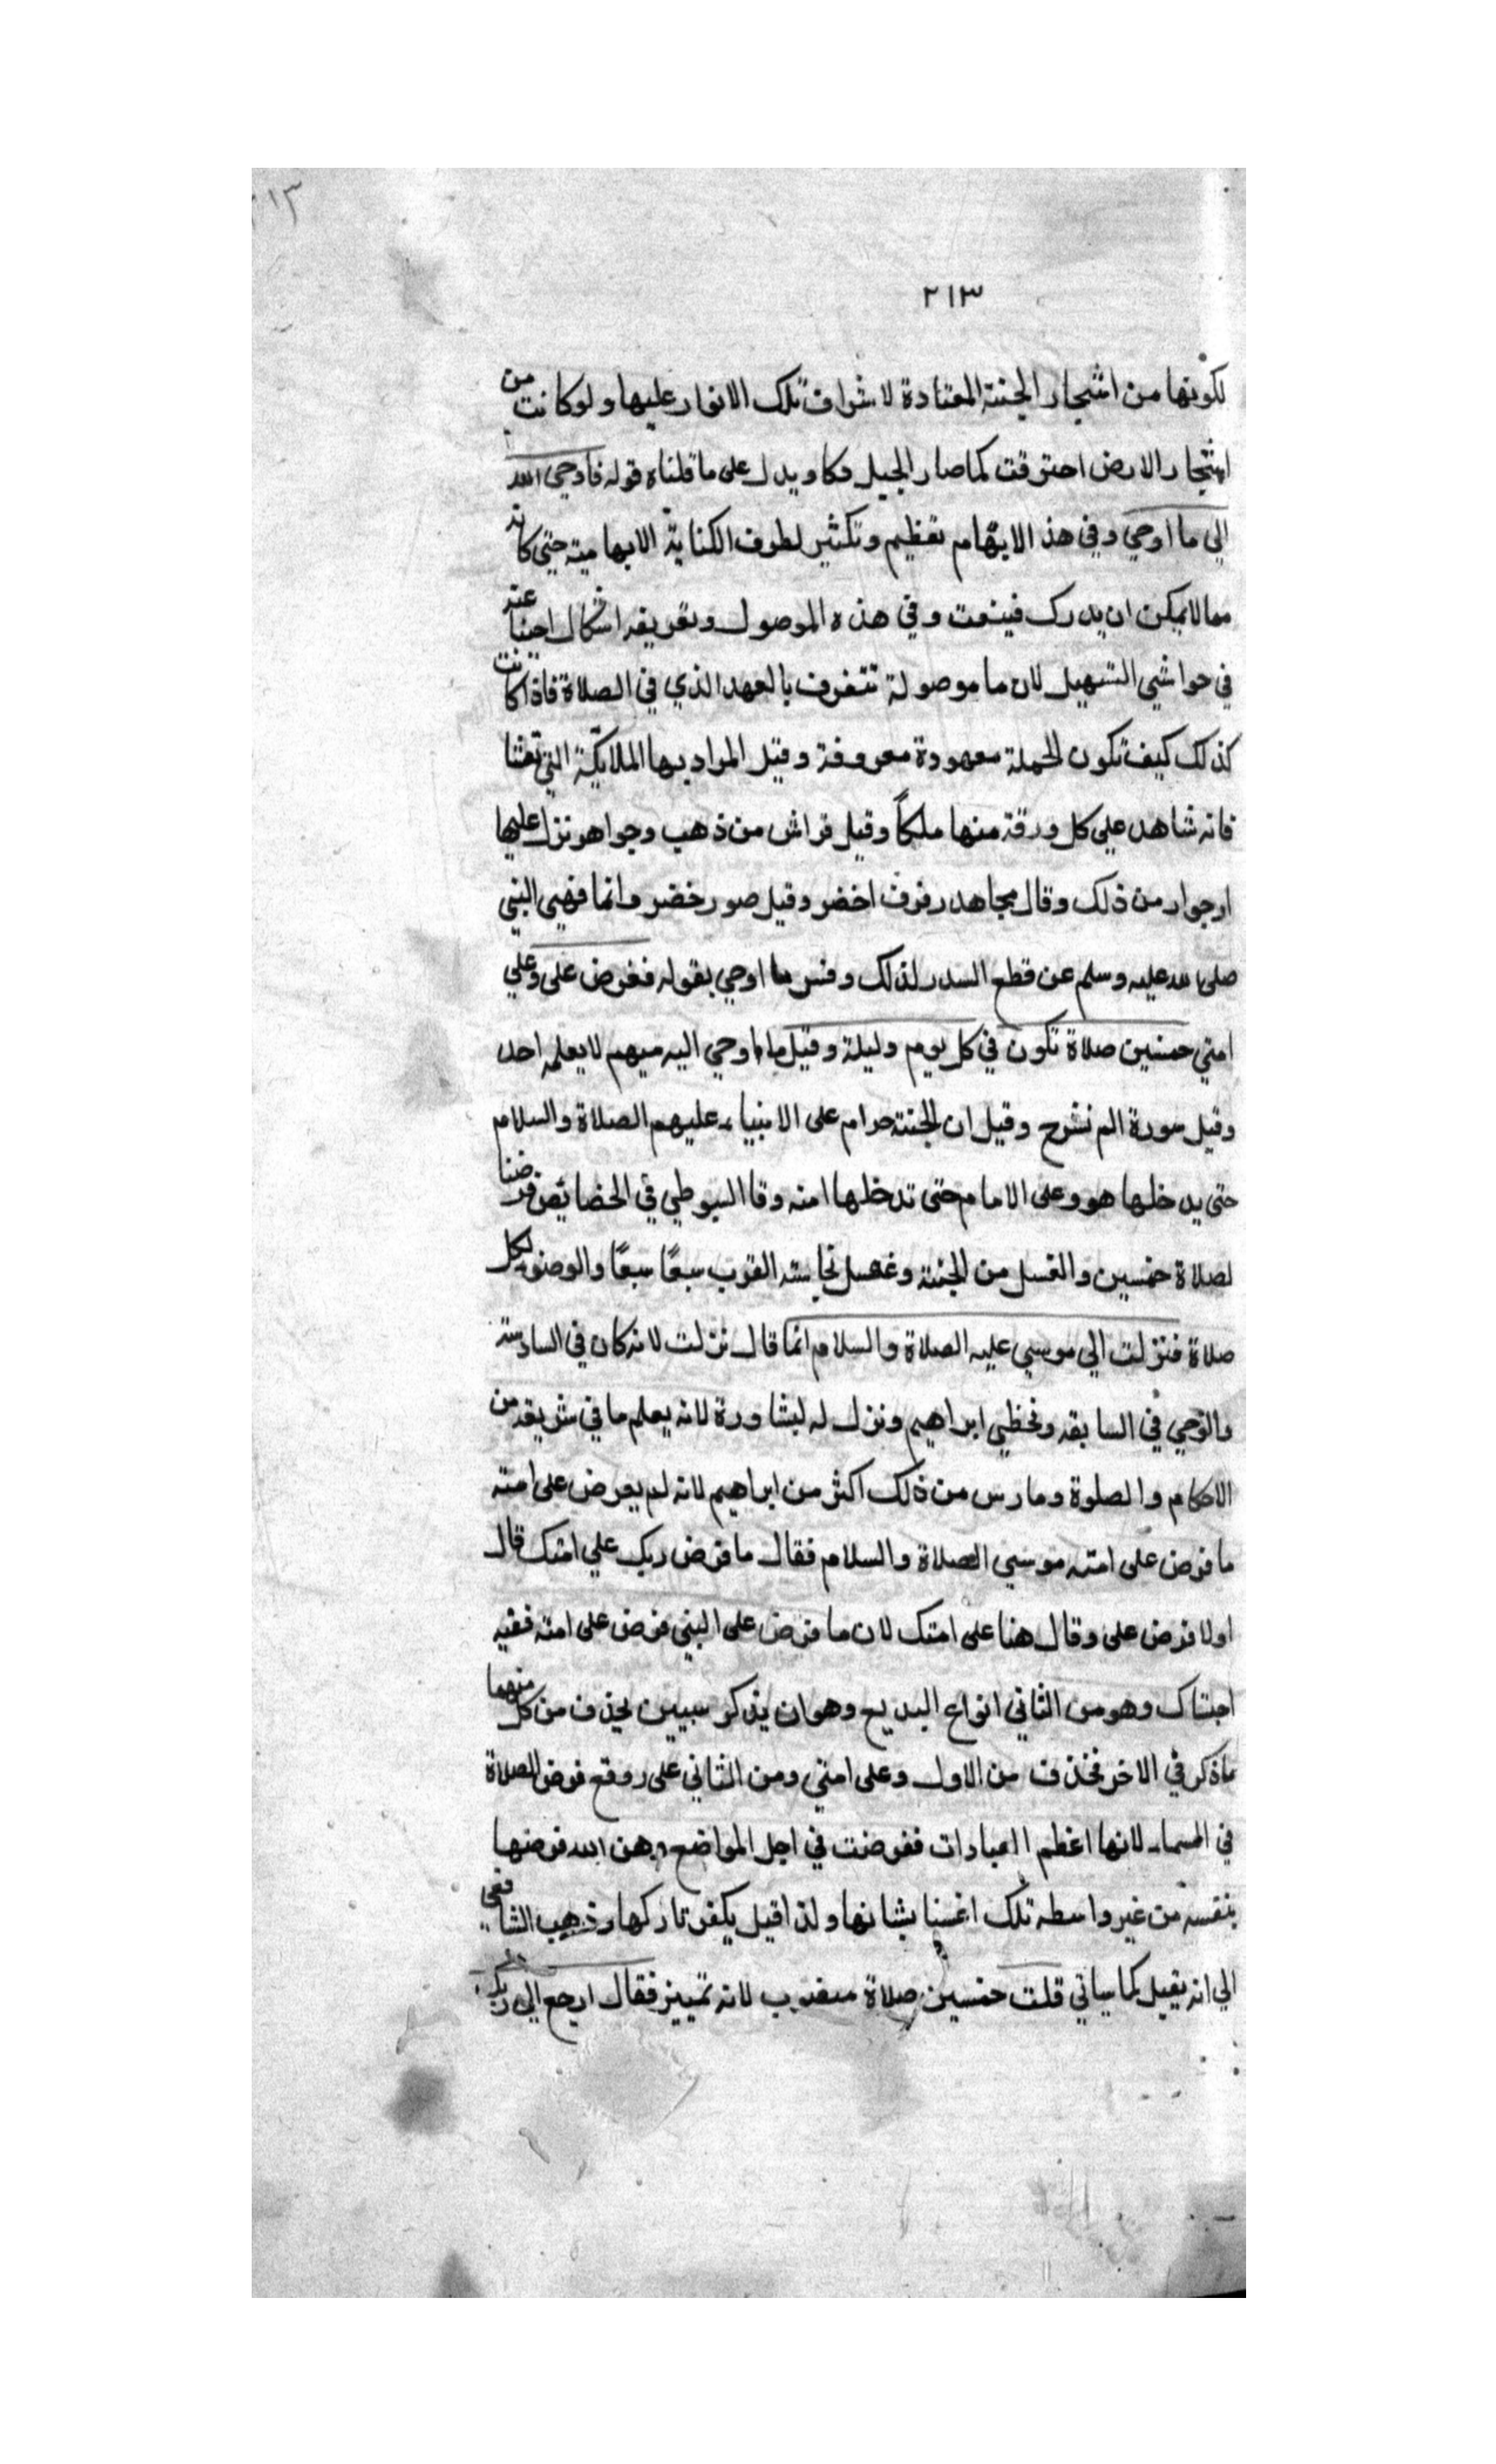 ٢١٣
٢١٣
لكونها من اشجار الجنة المعتادة لاشراف تلك الانوار عليها ولوكانت من
اشجار الارض احترقت كما صار الجبل دكا ويدل على ما قلناه قوله فاوحي الله
الي ما اوحي وفي هذ الابهام تعظيم وتكثير لطرف الكناية الابهامية حتي كانه
مما لا يمكن ان يدرك فينعت وفي هذه الموصول وتعريفه اشكال اجبنا عنه
في حواشي التسهيل لان ما موصولة تتعرف بالعهد الذي في الصلاة فاذا كانت
كذلك كيف تكون الجملة معهودة معروفة وقيل المراد بها الملايكة التي تغشا
فانه شاهد علي كل ورقة منها ملكاً وقيل فراش من ذهب وجواهر نزل عليها
ارجوار من ذلك وقال مجاهد رفرف اخضر وقيل صور خضر وانما فنهي النبي
صلى الله عليه وسلم عن قطع السدر لذلك وفسر ما اوحي بقوله ففرض على وعلي
امتي خمسين صلاة تكون في كل يوم وليلة وقيل ما اوحي اليه مبهم لا يعلمه احد
وقيل سورة الم نشرح وقيل ان الجنة حرام على الانبياء عليهم الصلاة والسلام
حتى يدخلها هو وعلى الامام حتى تدخلها امته وقا السيوطي في الخصايص فرضنا
لصلاة خمسين والغسل من الجنة وغسل نجاسته القرب سبعًا سبعًا والوضوء لكل
صلاة فنزلت الي موسي عليه الصلاة والسلام انما قال نزلت لانه كان في السادسة
والوحي في السابقه وتخطي ابراهيم ونزل له ليشاورة لانه يعلم ما في شريعته من
الاحكام والصلوة ومارس من ذلك اكثر من ابراهيم لانه لم يعرض على امته
ما فرض على امته موسي الصلاة والسلام فقال ما فرض ربك علي امتك قال
اولا فرض على وقال هنا على امتك لان ما فرض على النبي فرض على امته ففيه
احبتاك وهو من الثاني انواع البديع وهو ان يذكر سببين يحذف من كل منهما
ماذكر في الاخر فخذف من الاول وعلى امتي ومن الثاني على روقع فرض الصلاة
في السماء لانها اعظم العبادات ففرضت في اجل المواضع وهن الله فرضها
بنفسه من غير واسطه تلك اغسنا بشانها ولذا قيل يكفر تاركها وذهب الشافعي
الي انه يقيل كما سياتي قلت خمسين صلاة منصوب لانه تمييز فقال ارجع الي ربك